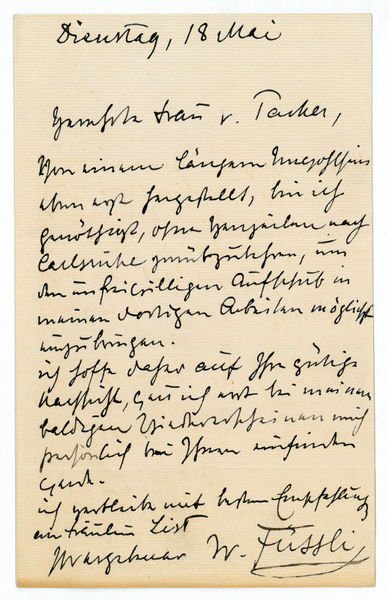 Dienstag, 18 Mai
Verehrte Frau v. Tacker,
Von einem längern Unwohlsein
eben erst hergestellt, bin ich
genöthigt, ohne Verweilen nach
Carlsruhe zurückzukehren, um
den unfreiwilligen Aufschub in
meinen dortigen Arbeiten möglichst
einzubringen.
ich hoffe daher auf Ihre gütige
Nachsicht, daß ich erst bei meinem
baldigen Wiedererscheinen mich
persönlich bei Ihnen einfinden
werde.
ich verbleibe mit besten Empfehlung
an Fräulein List
Ihr ergebener W. Füssli